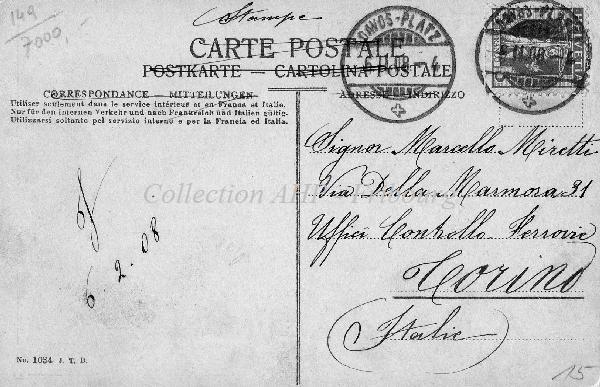 149
7000,
Stampe
CARTE POSTALE
POSTKARTE — CARTOLINA POSTALE
CORRESPONDANCE — MITTEILUNGEN
ADRESSE — INDIRIZZO
Utiliser seulement dans le service intérieur et en France et Italie.
Nur für den internen Verkehr und nach Frankreich und Italien gültig.
Utilizzarsi soltanto pel servizio interno e per la Francia ed Italia.
DAVOS-PLATZ
DAVOS-PLATZ
HELVETIA
Signor Marcello Miretti
Via Della Marmosa 31
Uffici Controllo Ferrovie
Torino
(Italie)
6.2.08
Collection
No. 1084 J. T. B.
15